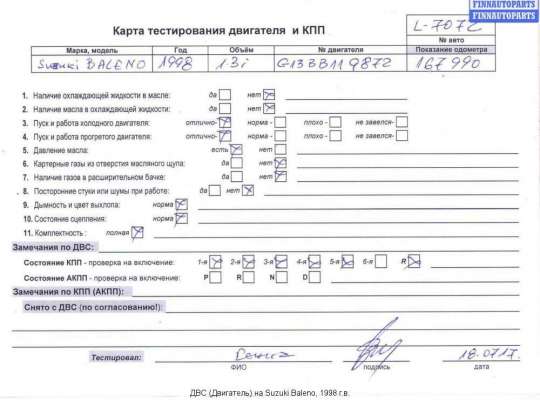 FINNAUTOPARTS
FINNAUTOPARTS
Карта тестирования двигателя и КПП
L-7072
№ авто
Марка, модель Год Объём № двигателя Показание одометра
Suzuki BALENO 1998 1.3i G13BB119872 167990
1. Наличие охлаждающей жидкости в масле: да нет
2. Наличие масла в охлаждающей жидкости: да нет
3. Пуск и работа холодного двигателя: отлично- норма - плохо - не завелся-
4. Пуск и работа прогретого двигателя: отлично- норма - плохо - не завелся-
5. Давление масла: есть нет
6. Картерные газы из отверстия масляного щупа: да нет
7. Наличие газов в расширительном бачке: да нет
8. Посторонние стуки или шумы при работе: да нет
9. Дымность и цвет выхлопа: норма
10. Состояние сцепления: норма
11. Комплектность : полная
Замечания по ДВС:
Состояние КПП - проверка на включение: 1-я 2-я 3-я 4-я 5-я 6-я R
Состояние АКПП - проверка на включение: P R N D
Замечания по КПП (АКПП):
Снято с ДВС (по согласованию!):
Тестировал: 18.07.17.
ФИО подпись дата
ДВС (Двигатель) на Suzuki Baleno, 1998 г.в.